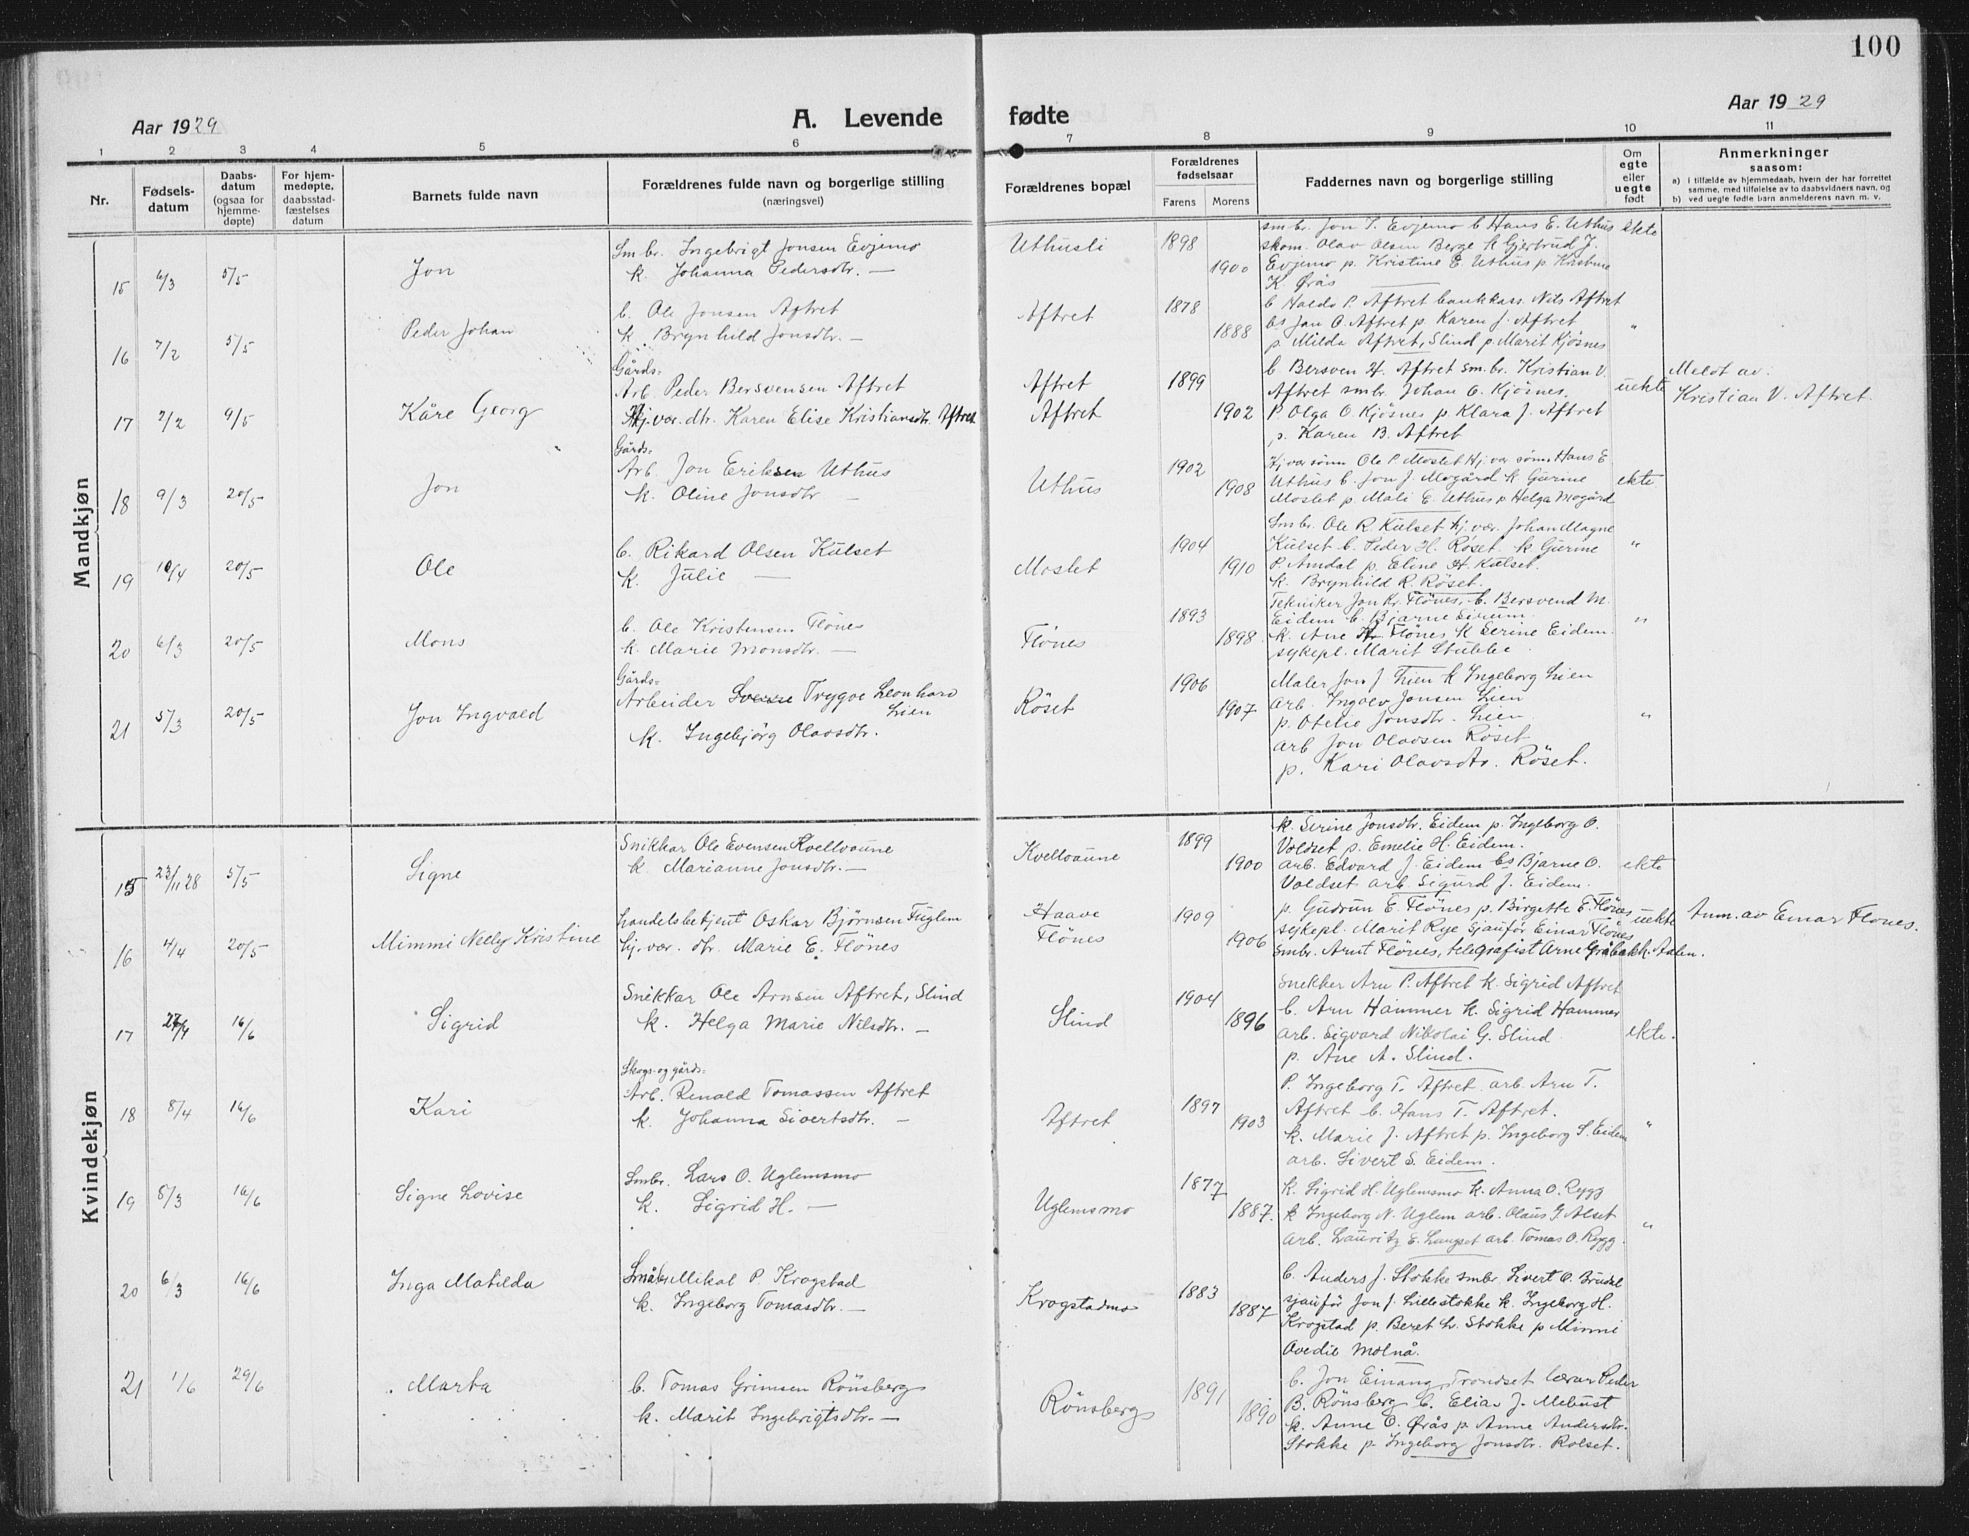 100
Aar 1929
A. Levende fødte
Aar 1929
1 2 3 4 5 6 7 8 9 10 11
Nr.
Fødsels-
datum
Daabs-
datum
(ogsaa for
hjemme-
døpte)
For hjem-
medøpte,
daabsstad-
fæstelses
datum
Barnets fulde navn
Forældrenes fulde navn og borgerlige stilling
(næringsvei)
Forældrenes bopæl
Forældrenes
fødselsaar
Farens Morens
Faddernes navn og borgerlige stilling
Om
egte
eller
uegte
født
Anmerkninger
saasom:
a) i tilfælde av hjemmedaab, hvem der har forrettet
samme, med tilføielse av to daabsvidners navn, og
b) ved uegte fødte barn anmelderens navn m. v.
Mandkjøn
15 6/3 5/5 Jon
Smbr. Ingebrigt Jonsen Evjemo
k. Johanna Pedersdtr. —
Uthusli 1898 1900
smbr. Jon P. Evjemo b Hans E. Uthus
skom. Olav Olsen Berge k Gjertrud J.
Evjemo p. Kristine E. Uthus p. Kristine
K. Ørås
ekte
16 7/2 5/5 Peder Johan
b. Ole Jonsen Aftret
k. Brynhild Jonsdtr. —
Aftret 1878 1888
b Haldo P. Aftret bankkass. Nils Aftret
bs Jan O. Aftret p. Karen J. Aftret
p. Milda Aftret, Slind p. Marit Kjøsnes
"
17 7/2 9/5 Kåre Georg
Gårds-
Arb. Peder Bersvensen Aftret
Hj.vær. dtr. Karen Elise Kristiansdtr. Aftret
Aftret
Aftret
1899 1902
b Bersven H. Aftret smbr. Kristian V.
Aftret smbr. Johan O. Kjösnes.
P. Olga O. Kjösnes p. Klara J. Aftret
p. Karen B. Aftret
uekte
Meldt av
Kristian V. Aftret.
18 9/3 20/5 Jon
Gårds-
Arb. Jon Eriksen Uthus
k. Oline Jonsdtr —
Uthus 1902 1908
Hj.vær sønn Ole P. Moslet Hj. vær sønn Hans E
Uthus b. Jon J. Mogård k Gurine
Moslet p. Mali E. Uthus p Helga Mogård
ekte
19 10/4 20/5 Ole
b. Rikard Olsen Kulset
k. Julie —
Moslet 1904 1910
Smbr. Ole R. Kulset hj. vær. Johan Magne
Kulset b. Peder H. Røset. k Gurine
P. Amdal p. Eline H. Kulset.
k. Brynhild R. Röset.
"
20 6/3 20/5 Mons
b. Ole Kristensen Flönes
k. Marie Monsdtr. —
Flönes 1893 1898
Tekniker Jon Kr. Flönes, b. Bersvend M.
Eidem b. Bjarne Eidem
k. Ane Flönes k Serine Eidem.
sykepl. Marit Stubbe
"
21 5/3 20/5 Jon Ingvald
Gårds-
Arbeider Sverre Trygve Leonhard
Lien
k. Ingebjörg Olavsdtr.
Röset 1906 1907
Maler Jon J. Lien k Ingeborg Lien
arb. Ingolv Jonsen Lien
p. Otelie Jonsdtr. Lien
arb Jon Olavsen Röset
p. Kari Olavsdtr. Röset.
"
Kvindekjøn
15 23/11 28 5/5 Signe
Snikkar Ole Evensen Kvellvaune
k. Marianne Jonsdtr. —
Kvellvaune 1899 1900
k. Serine Jonsdtr. Eidem p. Ingeborg O.
Voldset p. Emelie H. Eidem.
arb. Edvard J. Eidem bs Bjarne O.
Voldset arb Sigurd J. Eidem.
ekte
16 4/4 20/5 Mimmi Nelly Kristine
handelsbetjent Oskar Bjørnsen Fuglem
hj.vær. dtr. Marie E. Flönes
Haave
Flönes
1909 1906
p. Gudrun E. Flönes p. Birgette E. Flönes
sykepl. Marit Rye sjauför Einar Flönes
smbr. Arnt Flönes, telegrafist Arne Gråbakk. Aalen.
uekte
Anm. av Einar Flones.
17 27/4 16/6 Sigrid
Snekkar Ole Arnsen Aftret, Slind
k. Helga Marie Nilsdtr. —
Slind 1904 1896
Snekker Arn P. Aftret k. Sigrid Aftret
b. Arn Hammer k. Sigrid Hammer
arb. Sigvard Nikolai G. Slind
p. Ane A. Slind.
ekte.
18 8/4 16/6 Kari
Skogs- og gårds-
Arb. Renald Tomassen Aftret
k. Johanna Sivertsdtr. —
Aftret 1897 1903
P. Ingeborg T. Aftret arb. Arn T.
Aftret b. Hans T. Aftret.
k. Marie J. Aftret p. Ingeborg S. Eidem
arb. Sivert S. Eidem.
"
19 8/3 16/6 Signe Lovise
Smbr. Lars O. Uglemsmo
k. Sigrid H. —
Uglemsmo 1877 1887.
k. Sigrid H. Uglemsmo k. Anna O. Rygg
k Ingeborg N. Uglem arb. Olaus G. Alset
arb. Lauritz E. Langset arb. Tomas O. Rygg.
"
20 6/3 16/6 Inga Matilda
Småbr. Mikal P. Krogstad
k. Ingeborg Tomasdtr. —
Krogstadmo 1883 1887
b. Anders J. Stokke smbr. Sivert O. Brudal
sjauför Jon J. Lillestokke k. Ingeborg H.
Krogstad p. Beret L. Stokke p Minni
Ovedie Molnå.
21 1/6 29/6 Marta
b. Tomas Grimsen Rönsberg
k. Marit Ingebrigtsdtr. —
Rönsberg 1891 1890
b. Jon Einang, Trondset lærar Peder
B. Rönsberg b. Elias J. Mebust
k. Anne O. Ørås p. Anne Andersdtr.
Stokke p. Ingeborg Jonsdtr. Rolset.